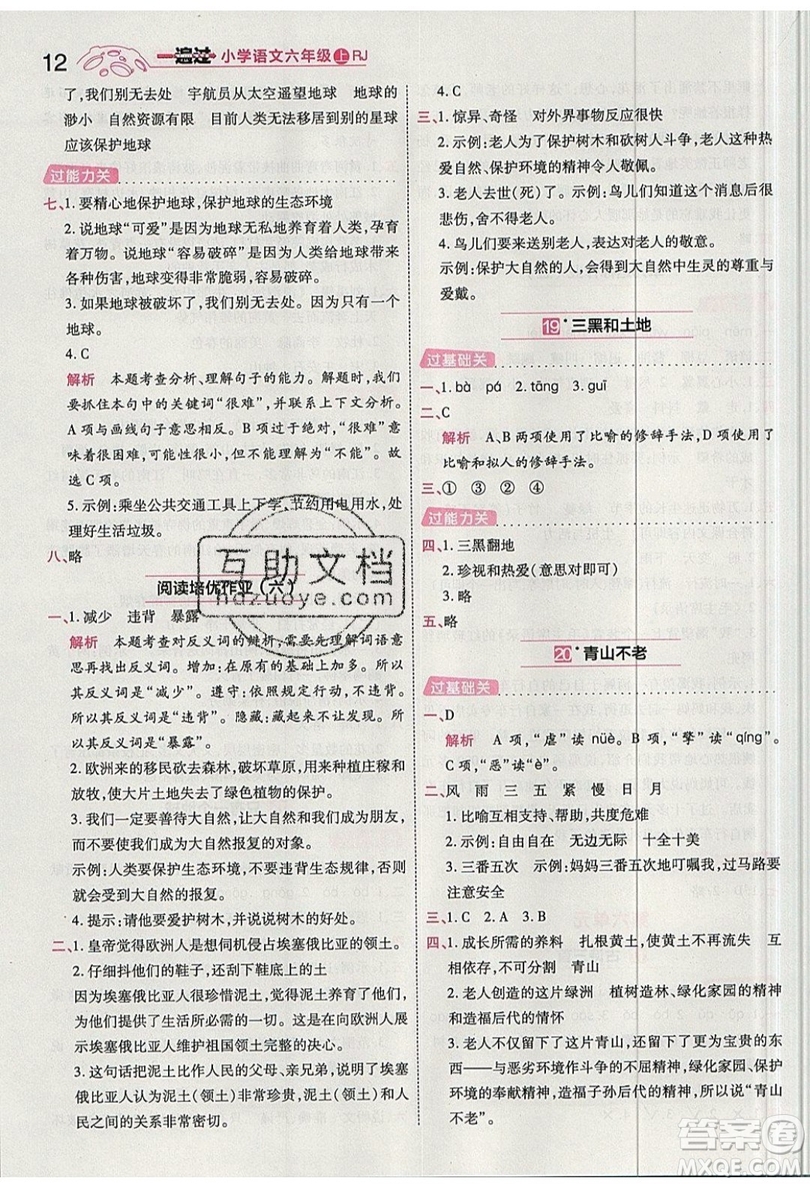 12
一遍过 小学语文六年级 上 RJ
了,我们别无去处 宇航员从太空遥望地球 地球的
渺小 自然资源有限 目前人类无法移居到别的星球
应该保护地球
过能力关
七、1.要精心地保护地球,保护地球的生态环境
2.说地球“可爱”是因为地球无私地养育着人类,孕育
着万物。说地球“容易破碎”是因为人类给地球带来
各种伤害,地球变得非常脆弱,容易破碎。
3.如果地球被破坏了,我们人类也不会有另一个
地球。
4.C
解析 本题考查分析、理解句子的能力。解题时,我们
要抓住本句中的关键词“很难”,并联系上下文来理解。
A项与画线句子完全相反。B项过于绝对,“很难”意味
着困难很大,可能性很小,但不能理解为“不能”。故
选C项。
5.示例:乘坐公共交通工具上下学,节约用电用水,处
理好生活垃圾。
八、略
阅读培优作业(六)
一、1.减少 违背 暴露
解析 本题考查对反义词的辨析,需要先理解词语意
思再找出反义词。增加:在原有的基础上加多。所以
其反义词是“减少”。遵守:依照规定行动,不违背。
所以其反义词是“违背”。隐藏:藏起来不让发现。所
以其反义词是“暴露”。
2.欧洲来的移民砍去森林,破坏草原,用来种植庄稼和
放牧,使大片土地失去了绿色植物的保护。
3.我们一定要善待大自然,和大自然和谐共处,成为朋友,
万万不能使我们成为大自然报复的对象。
示例:人类要保护生态环境,不要违背自然规律,否则
会受到大自然的报复。
4.提示:请他要爱护树木,并说说保护树木的好处。
二、1.皇帝觉得欧洲人是想伺机侵占埃塞俄比亚的领土。
2.仔细抖动他们的鞋子,还刮去了鞋底上的泥土
因为埃塞俄比亚人很珍惜泥土,并向欧洲人展
示埃塞俄比亚人很重视、保护自己的领土。
3.这句话运用了比喻的修辞手法,说明了埃塞
俄比亚人民之间的关系非常密切。
4.C
三、1.惊异、奇怪 对外界事物反应很快
2.示例:老人为了保护树木和砍树人斗争,老人这种热
爱自然、保护环境的精神令人敬佩。
3.老人去世(死)了。示例:鸟儿知道了这个消息后很
悲伤,失声痛哭。
4.鸟儿们要送别老人,表达对老人的敬意。
示例:保护大自然的人会受到大自然中生灵的尊重与
爱戴。
19*三黑和土地
过基础关
一、1.bà pá 2.tāng 3.guī
二、C
解析 A、B两项使用了比喻的修辞手法。C项使用了
比喻和拟人的修辞手法。
三、① ③ ② ④
过能力关
四、1.三黑翻地
2.珍视和热爱(意思对即可)
3.略
五、略
20*青山不老
过基础关
一、D
解析 A项,“虐”读nüè。B项,“擎”读“qíng”。
C项,“恶”读“è”。
二、风 雨 三 五 紧 慢 日 月
1.比喻互相支持、帮助,共度危难
2.示例:自由自在 无边无际 十全十美
3.三番五次 示例:妈妈三番五次地叮嘱我,过马路要
注意安全
三、1.C 2.A 3.B
四、1.成长所需的养料 扎根黄土,使黄土不再流失 互
相交融,不可分割 青山
2.老人创造的这片绿洲 植树造林、绿化家园、造
福后代的情怀
3.老人不仅留下了这片青山,还留下了更为宝贵的东
西——与恶劣环境作斗争的不屈精神,绿化家园、保护
环境的奉献精神,造福子孙后代的精神,所以说“青山
不老”。
互助文档
hzuzuoye.com
答案圈
MXQE.COM